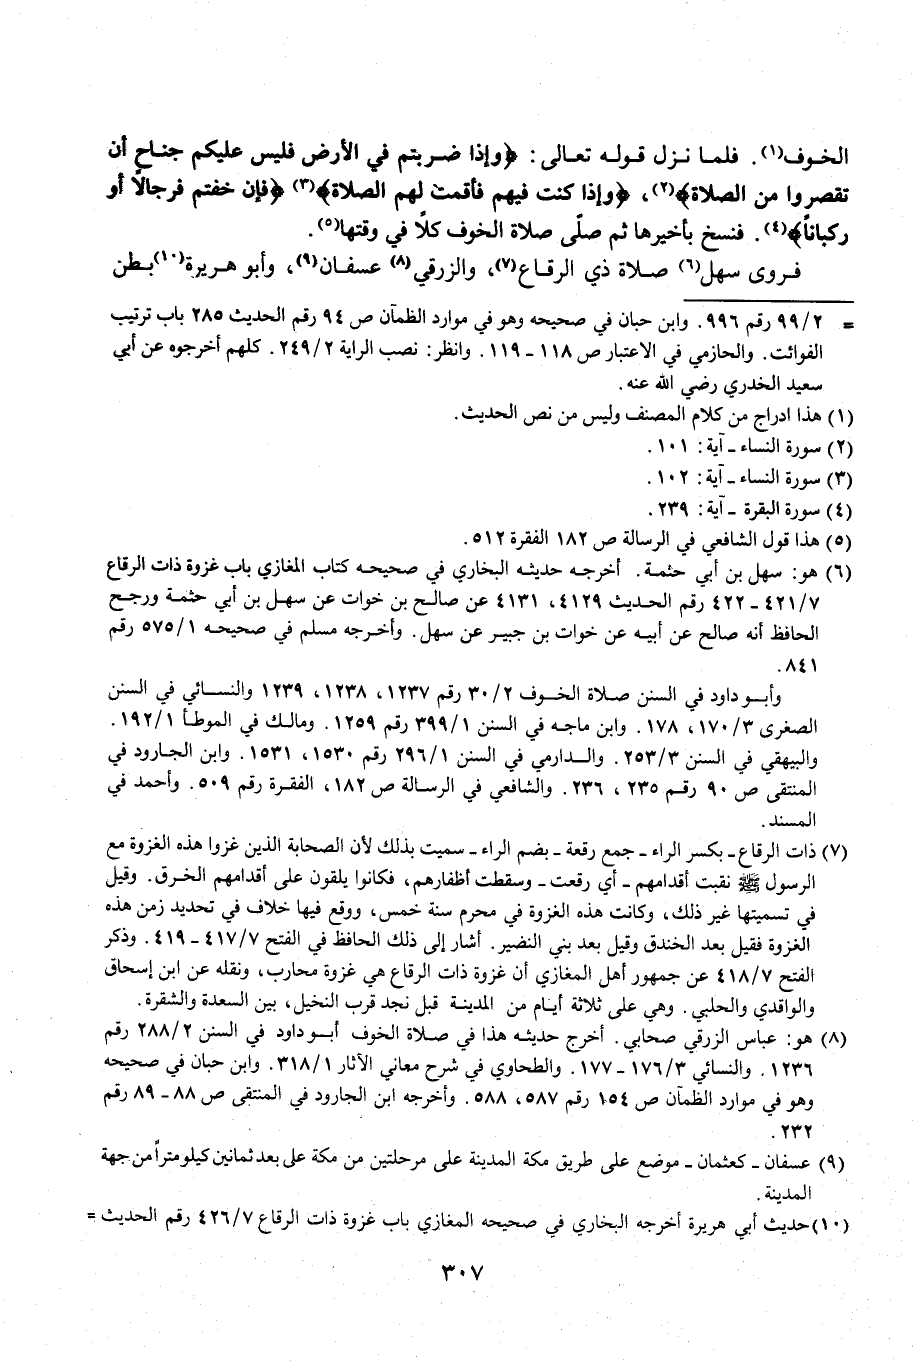 الخوف(١). فلما نزل قوله تعالى: ﴿وإذا ضربتم في الأرض فليس عليكم جناح أن
تقصروا من الصلاة﴾(٢)، ﴿وإذا كنت فيهم فأقمت لهم الصلاة﴾(٣) ﴿فإن خفتم فرجالًا أو
ركباناً﴾(٤). فنسخ بأخيرها ثم صلّى صلاة الخوف كلًا في وقتها(٥).
فروى سهل(٦) صلاة ذي الرقاع(٧)، والزرقي(٨) عسفان(٩)، وأبو هريرة(١٠) بطن
= ٩٩/٢ رقم ٩٩٦. وابن حبان في صحيحه وهو في موارد الظمآن ص ٩٤ رقم الحديث ٢٨٥ باب ترتيب
الفوائت. والحازمي في الاعتبار ص ١١٨ - ١١٩. وانظر: نصب الراية ٢٤٩/٢. كلهم أخرجوه عن أبي
سعيد الخدري رضي الله عنه.
(١) هذا ادراج من كلام المصنف وليس من نص الحديث.
(٢) سورة النساء - آية: ١٠١.
(٣) سورة النساء - آية: ١٠٢.
(٤) سورة البقرة - آية: ٢٣٩.
(٥) هذا قول الشافعي في الرسالة ص ١٨٢ الفقرة ٥١٢.
(٦) هو: سهل بن أبي حثمة. أخرجه حديثه البخاري في صحيحه كتاب المغازي باب غزوة ذات الرقاع
٤٢١/٧ - ٤٢٢ رقم الحديث ٤١٢٩، ٤١٣١ عن صالح بن خوات عن سهل بن أبي حثمة ورجح
الحافظ أنه صالح عن أبيه عن خوات بن جبير عن سهل. وأخرجه مسلم في صحيحه ٥٧٥/١ رقم
٨٤١.
وأبو داود في السنن صلاة الخوف ٣٠/٢ رقم ١٢٣٧، ١٢٣٨، ١٢٣٩ والنسائي في السنن
الصغرى ١٧٠/٣، ١٧٨. وابن ماجه في السنن ٣٩٩/١ رقم ١٢٥٩. ومالك في الموطأ ١٩٢/١.
والبيهقي في السنن ٢٥٣/٣. والدارمي في السنن ٢٩٦/١ رقم ١٥٣٠، ١٥٣١. وابن الجارود في
المنتقى ص ٩٠ رقم ٢٣٥، ٢٣٦. والشافعي في الرسالة ص ١٨٢، الفقرة رقم ٥٠٩. وأحمد في
المسند.
(٧) ذات الرقاع - بكسر الراء - جمع رقعة - بضم الراء - سميت بذلك لأن الصحابة الذين غزوا هذه الغزوة مع
الرسول ﷺ نقبت أقدامهم - أي رقعت - وسقطت أظفارهم، فكانوا يلقون على أقدامهم الخرق. وقيل
في تسميتها غير ذلك، وكانت هذه الغزوة في محرم سنة خمس، ووقع فيها خلاف في تحديد زمن هذه
الغزوة فقيل بعد الخندق وقيل بعد بني النضير. أشار إلى ذلك الحافظ في الفتح ٤١٧/٧ - ٤١٩. وذكر
الفتح ٤١٨/٧ عن جمهور أهل المغازي أن غزوة ذات الرقاع هي غزوة محارب، ونقله عن ابن إسحاق
والواقدي والحلبي. وهي على ثلاثة أيام من المدينة قبل نجد قرب النخيل، بين السعدة والشقرة.
(٨) هو: عباس الزرقي صحابي. أخرج حديثه هذا في صلاة الخوف أبو داود في السنن ٢٨٨/٢ رقم
١٢٣٦. والنسائي ١٧٦/٣ - ١٧٧. والطحاوي في شرح معاني الآثار ٣١٨/١. وابن حبان في صحيحه
وهو في موارد الظمآن ص ١٥٤ رقم ٥٨٧، ٥٨٨. وأخرجه ابن الجارود في المنتقى ص ٨٨ - ٨٩ رقم
٢٣٢.
(٩) عسفان - كعثمان - موضع على طريق مكة المدينة على مرحلتين من مكة على بعد ثمانين كيلومتراً من جهة
المدينة.
(١٠) حديث أبي هريرة أخرجه البخاري في صحيحه المغازي باب غزوة ذات الرقاع ٤٢٦/٧ رقم الحديث =
٣٠٧